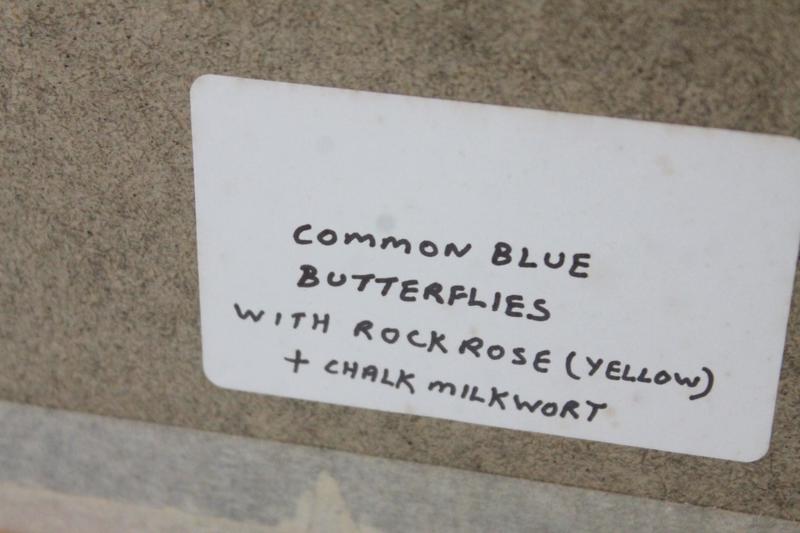 COMMON BLUE
BUTTERFLIES
WITH ROCKROSE (YELLOW)
+ CHALK MILKWORT